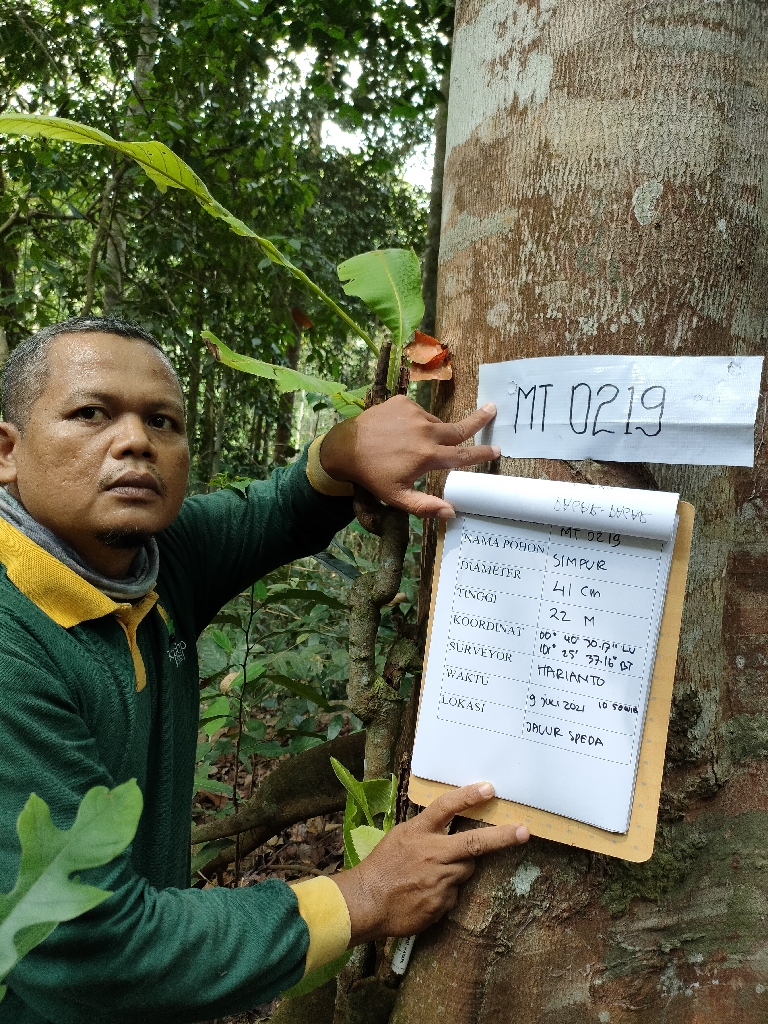 MT 0219
MT 0219
NAMA POHON SIMPUR
DIAMETER 41 Cm
TINGGI 22 M
KOORDINAT 00° 40' 30.17" LU
101° 25' 37.16" BT
SURVEYOR HARIANTO
WAKTU 9 JULI 2021 10 50 WIB
LOKASI JALUR SPEDA